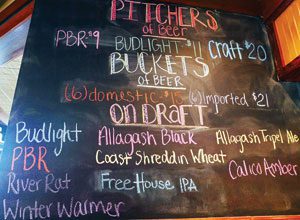 PITCHERS
of Beer
PBR $9 BUDLIGHT $11 Craft $20
BUCKETS
of BEER
(6) domestic $15 (6) Imported $21
ON DRAFT
Budlight Allagash Black Allagash Tripel Ale
PBR Coast Shredd in Wheat
River Rat Free House IPA Calico Amber
Winter Warmer